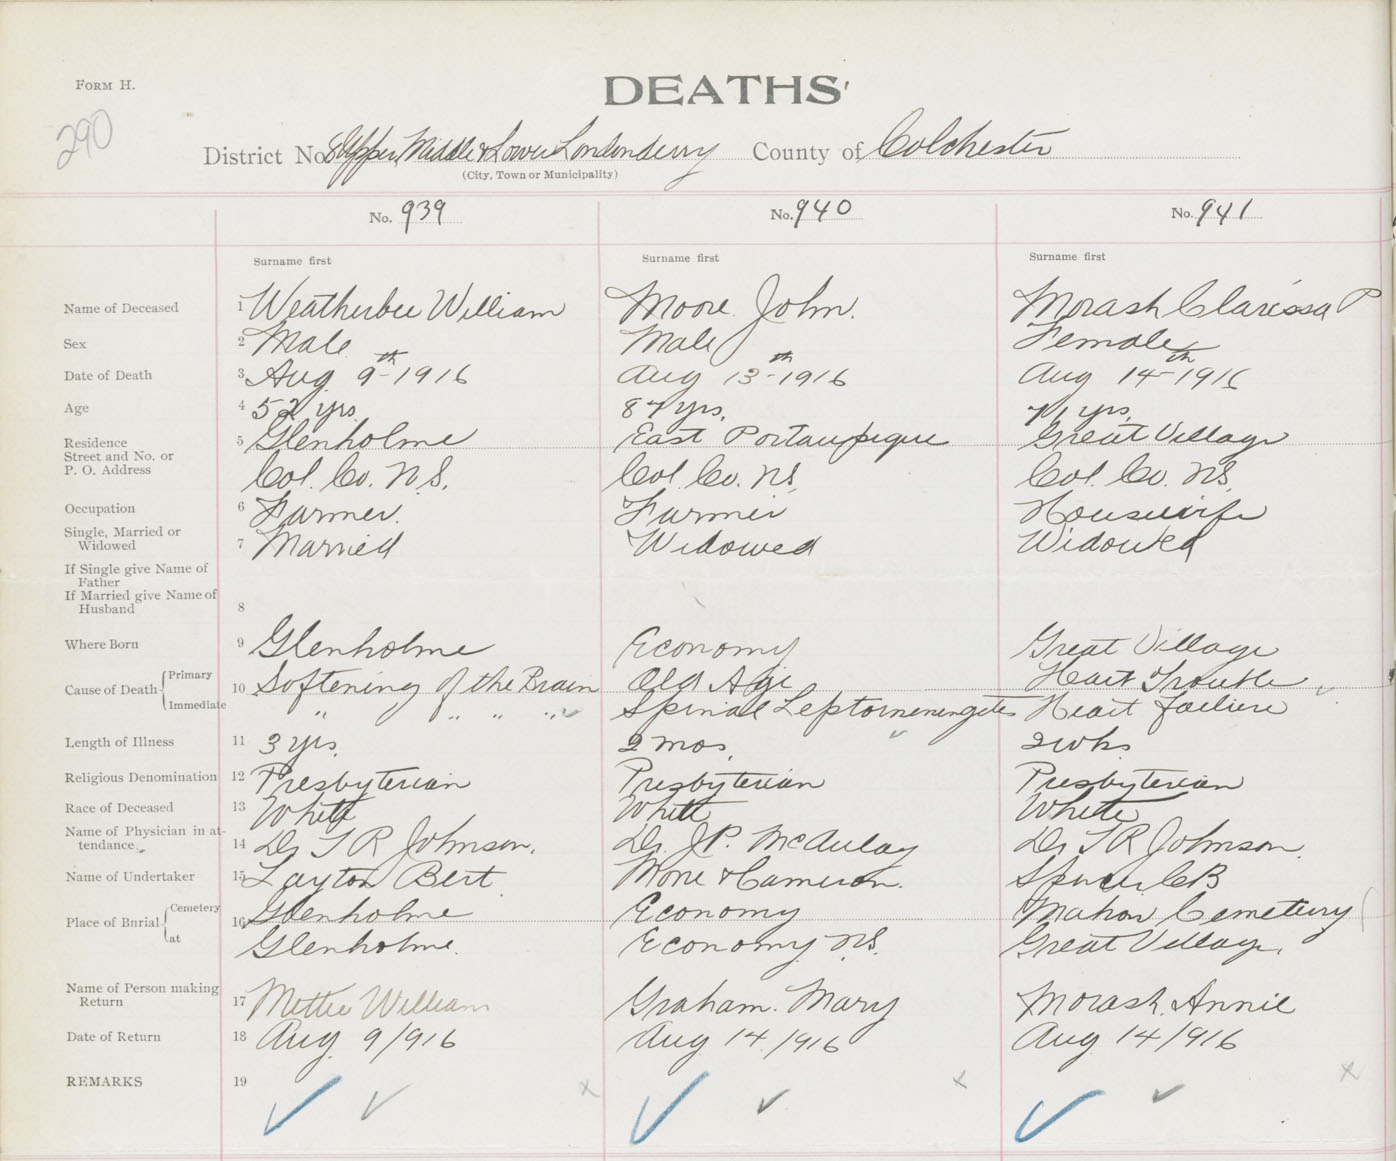 FORM H.
DEATHS
290
District No. 8 Upper, Middle & Lower Londonderry County of Colchester
(City, Town or Municipality)
No. 939 No. 940 No. 941
Surname first Surname first Surname first
Name of Deceased 1 Weatherbee William Moore John. Morash Clarissa P
Sex 2 Male Male Female
Date of Death 3 Aug. 9th 1916 Aug 13th 1916 Aug 14th 1916
Age 4 52 yrs 87 yrs, 71 yrs,
Residence 5 Glenholme East Portaupique Great Village
Street and No. or
P. O. Address Col. Co. N.S. Col. Co. NS Col. Co. NS
Occupation 6 Farmer. Farmer Housewife
Single, Married or
Widowed 7 Married Widowed Widowed
If Single give Name of
Father
If Married give Name of
Husband 8
Where Born 9 Glenholme Economy Great Village
Cause of Death Primary 10 Softening of the Brain Old Age Heart Trouble
Immediate " " " " Spinal Leptomeningetes Heart failure
Length of Illness 11 3 yrs. 2 mos. 2 wks
Religious Denomination 12 Presbyterian Presbyterian Presbyterian
Race of Deceased 13 White White White
Name of Physician in at-
tendance 14 Dr T R Johnson. Dr. J.P. McAulay Dr T R Johnson.
Name of Undertaker 15 Layton Bert More & Cameron. Spencer C B
Place of Burial Cemetery 16 Glenholme Economy Mahon Cemetery
at Glenholme. Economy NS. Great Village.
Name of Person making
Return 17 Mettie William Graham. Mary Morash Annie
Date of Return 18 Aug. 9/916 Aug 14/1916 Aug 14/916
REMARKS 19